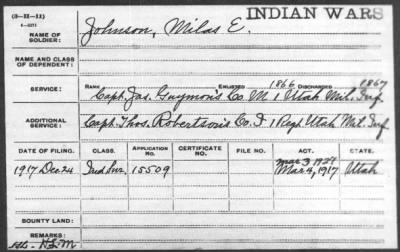 (3-II-11)
INDIAN WARS
NAME OF SOLDIER: Johnson, Milas E.
NAME AND CLASS OF DEPENDENT:
SERVICE: RANK ENLISTED 1866 DISCHARGED 1867
Capt. Jas. Guymon's Co. M 1 Utah Mil. Inf.
ADDITIONAL SERVICE: Capt. Thos. Robertson's Co. I 1 Regt. Utah Mil. Inf
DATE OF FILING. CLASS. APPLICATION No. CERTIFICATE No. FILE NO. ACT. STATE.
Mar 3 1927
1917 Dec 24 Ind Sur. 15509 Mar 4, 1917 Utah
BOUNTY LAND:
REMARKS: